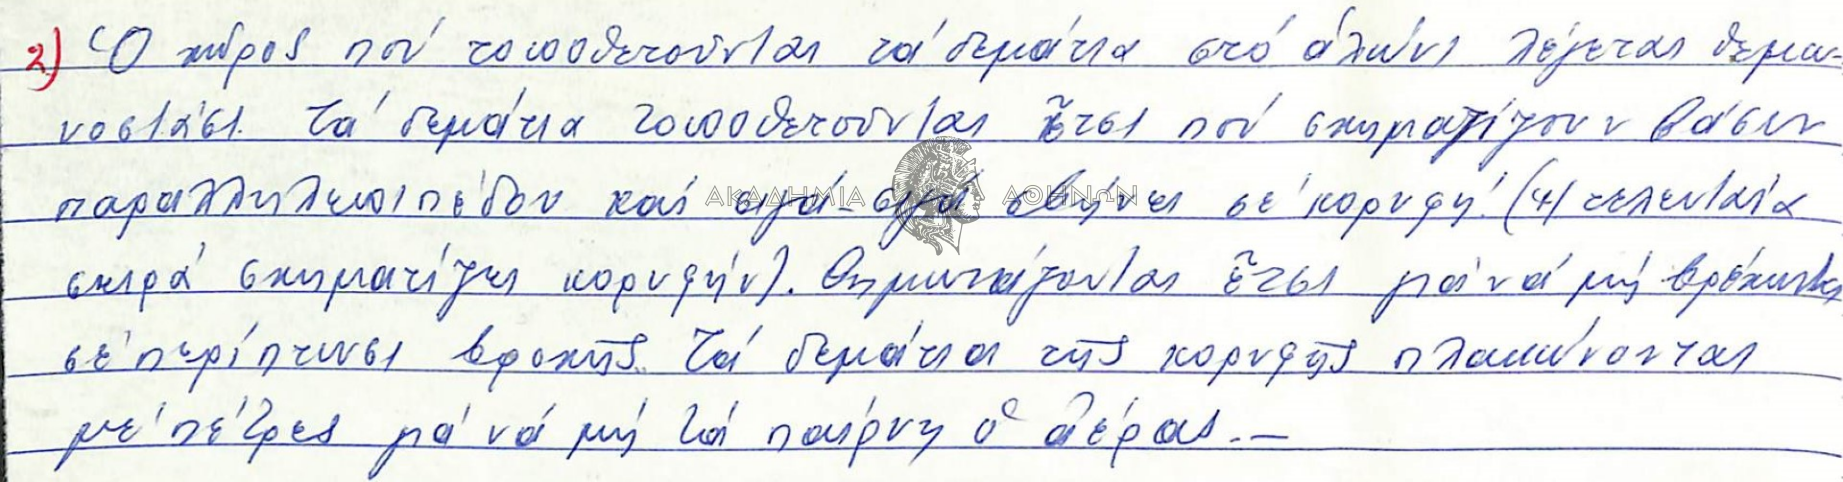 2) Ὁ χῶρος πού τοποθετοῦνται τά δεμάτια στό ἁλώνι λέγεται θεμω-
νοστάσι. Τά δεμάτια τοποθετοῦνται ἔτσι πού σχηματίζουν βάσιν
παραλληλεπιπέδου καί σιγά-σιγά σβήνει σέ κορυφή. (ἡ τελευταία
ΑΚΑΔΗΜΙΑ ΑΘΗΝΩΝ
σειρά σχηματίζει κορυφήν). Θημωνιάζονται ἔτσι γιά νά μή βρέχωνται
σέ περίπτωσι βροχῆς. Τά δεμάτια τῆς κορυφῆς πλακώνονται
μέ πέτρες γιά νά μή τά παίρνη ὁ ἀέρας.—